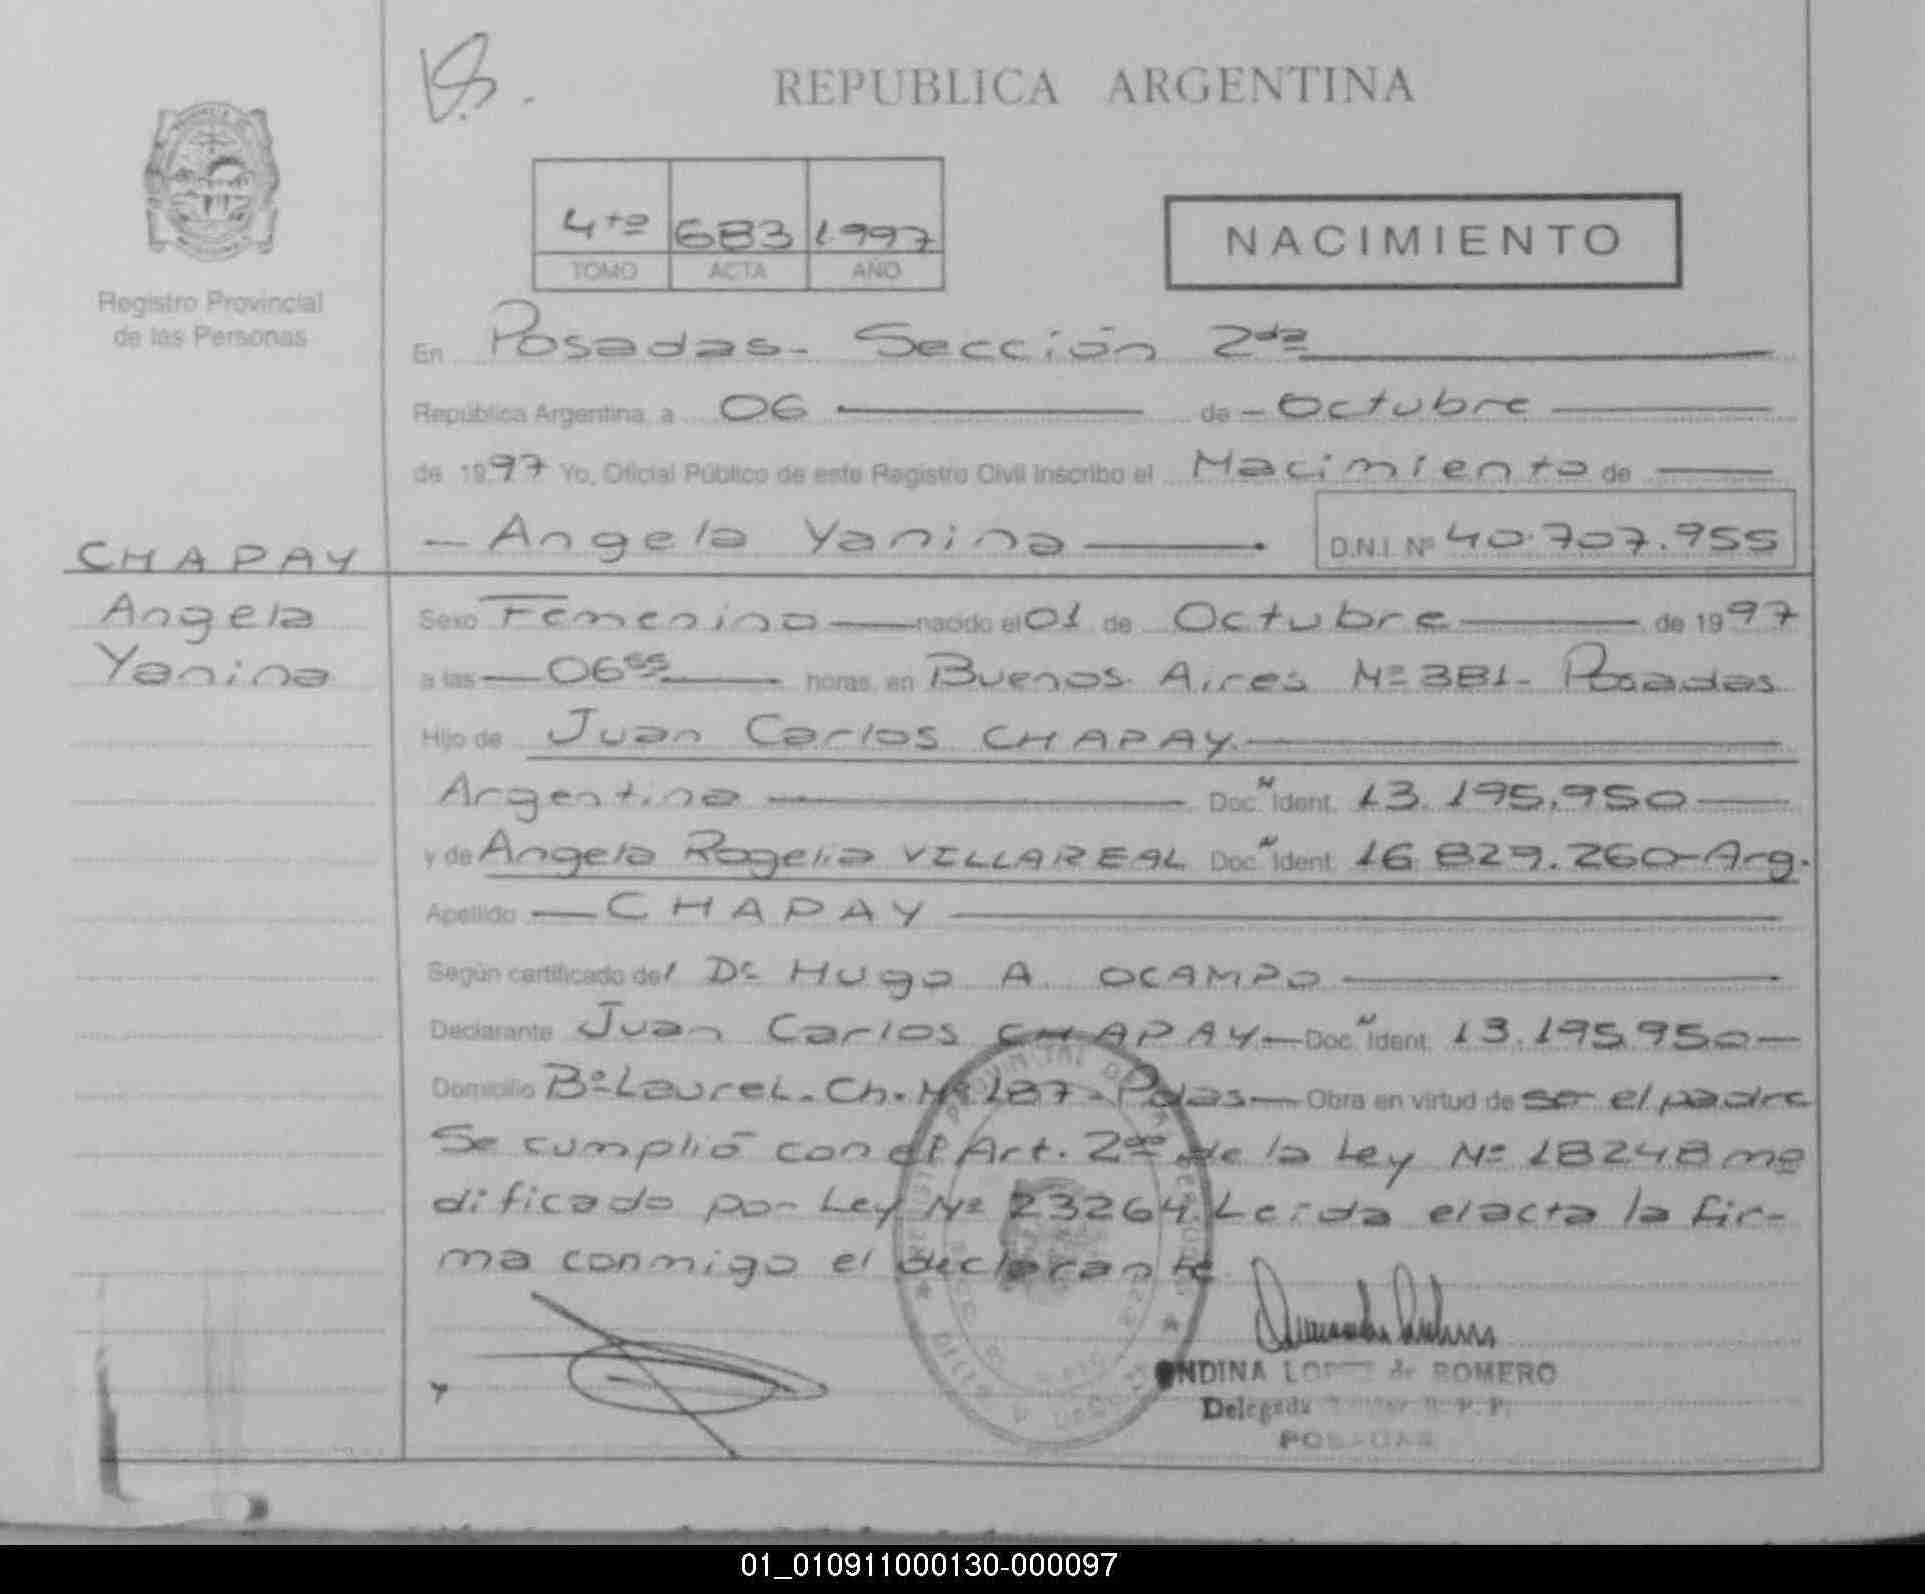 REPUBLICA ARGENTINA
4to 683 1997
TOMO ACTA AÑO
NACIMIENTO
Registro Provincial
de las Personas
En Posadas- Sección 2da
República Argentina, a 06 de Octubre
de 1997 Yo, Oficial Público de este Registro Civil Inscribo el Nacimiento de
Angela Yanina D.N.I. Nº 40.707.955
CHAPAY
Angela
Yanina
Sexo Femenino nacido el 01 de Octubre de 1997
a las 06 55 horas, en Buenos Aires Nº 381- Posadas
Hijo de Juan Carlos CHAPAY
Argentina Doc. N Ident. 13.195.950
y de Angela Rogelia VILLAREAL Doc. N Ident. 16.829.260-Arg.
Apellido CHAPAY
Según certificado del Dr Hugo A. OCAMPO
Declarante Juan Carlos CHAPAY Doc. N Ident. 13.195.950
Domicilio Bº Laurel. Ch. Nº 187- Pdas Obra en virtud de ser el padre
Se cumplió con el Art. 2do de la Ley Nº 18248 mo
dificado por Ley Nº 23264. Leida el acta la fir-
ma conmigo el declarante
LOPEZ de ROMERO
Delegada
POSADAS
01_010911000130-000097